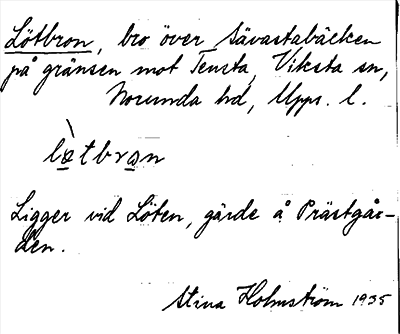 Lötbron, bro över Sävastabäcken
på gränsen mot Tensta, Viksta sn,
Norunda hd, Upps. l.
lœ̀tbrɷn
Ligger vid Löten, gärde å Prästgår-
den.
Stina Holmström 1935